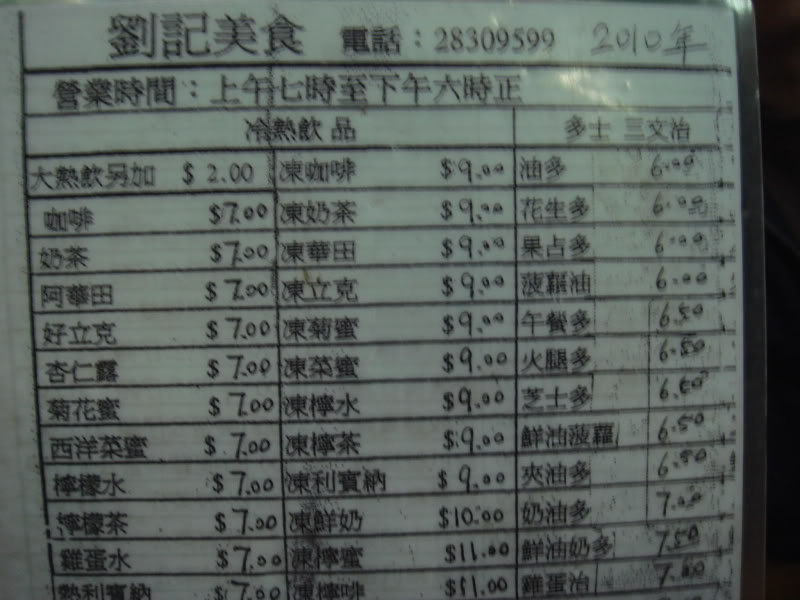 劉記美食 電話：28309599 2010年
營業時間：上午七時至下午六時正
冷熱飲品 多士 三文治
大熱飲另加 $2.00 凍咖啡 $9.00 油多 6.00
咖啡 $7.00 凍奶茶 $9.00 花生多 6.00
奶茶 $7.00 凍華田 $9.00 果占多 6.00
阿華田 $7.00 凍立克 $9.00 菠蘿油 6.00
好立克 $7.00 凍菊蜜 $9.00 午餐多 6.50
杏仁露 $7.00 凍菜蜜 $9.00 火腿多 6.50
菊花蜜 $7.00 凍檸水 $9.00 芝士多 6.50
西洋菜蜜 $7.00 凍檸茶 $9.00 鮮油菠蘿 6.50
檸檬水 $7.00 凍利賓納 $9.00 夾油多 6.50
檸檬茶 $7.00 凍鮮奶 $10.00 奶油多 7.00
雞蛋水 $7.00 凍檸蜜 $11.00 鮮油奶多 7.50
熱利賓納 $7.00 凍檸啡 $11.00 雞蛋治 7.00